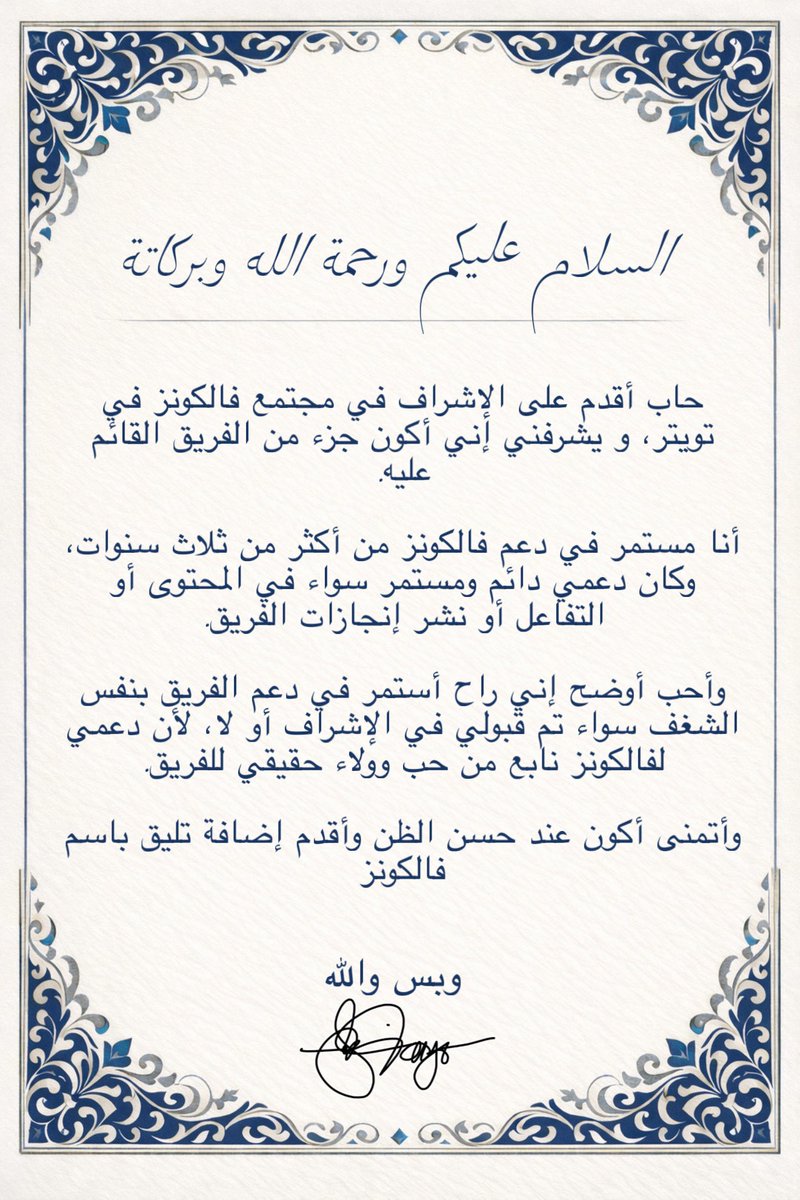 السلام عليكم ورحمة الله وبركاتة
حاب أقدم على الإشراف في مجتمع فالكونز في
تويتر، و يشرفني إني أكون جزء من الفريق القائم
عليه.
أنا مستمر في دعم فالكونز من أكثر من ثلاث سنوات،
وكان دعمي دائم ومستمر سواء في المحتوى أو
التفاعل أو نشر إنجازات الفريق.
وأحب أوضح إني راح أستمر في دعم الفريق بنفس
الشغف سواء تم قبولي في الإشراف أو لا، لأن دعمي
لفالكونز نابع من حب وولاء حقيقي للفريق.
وأتمنى أكون عند حسن الظن وأقدم إضافة تليق باسم
فالكونز
وبس والله